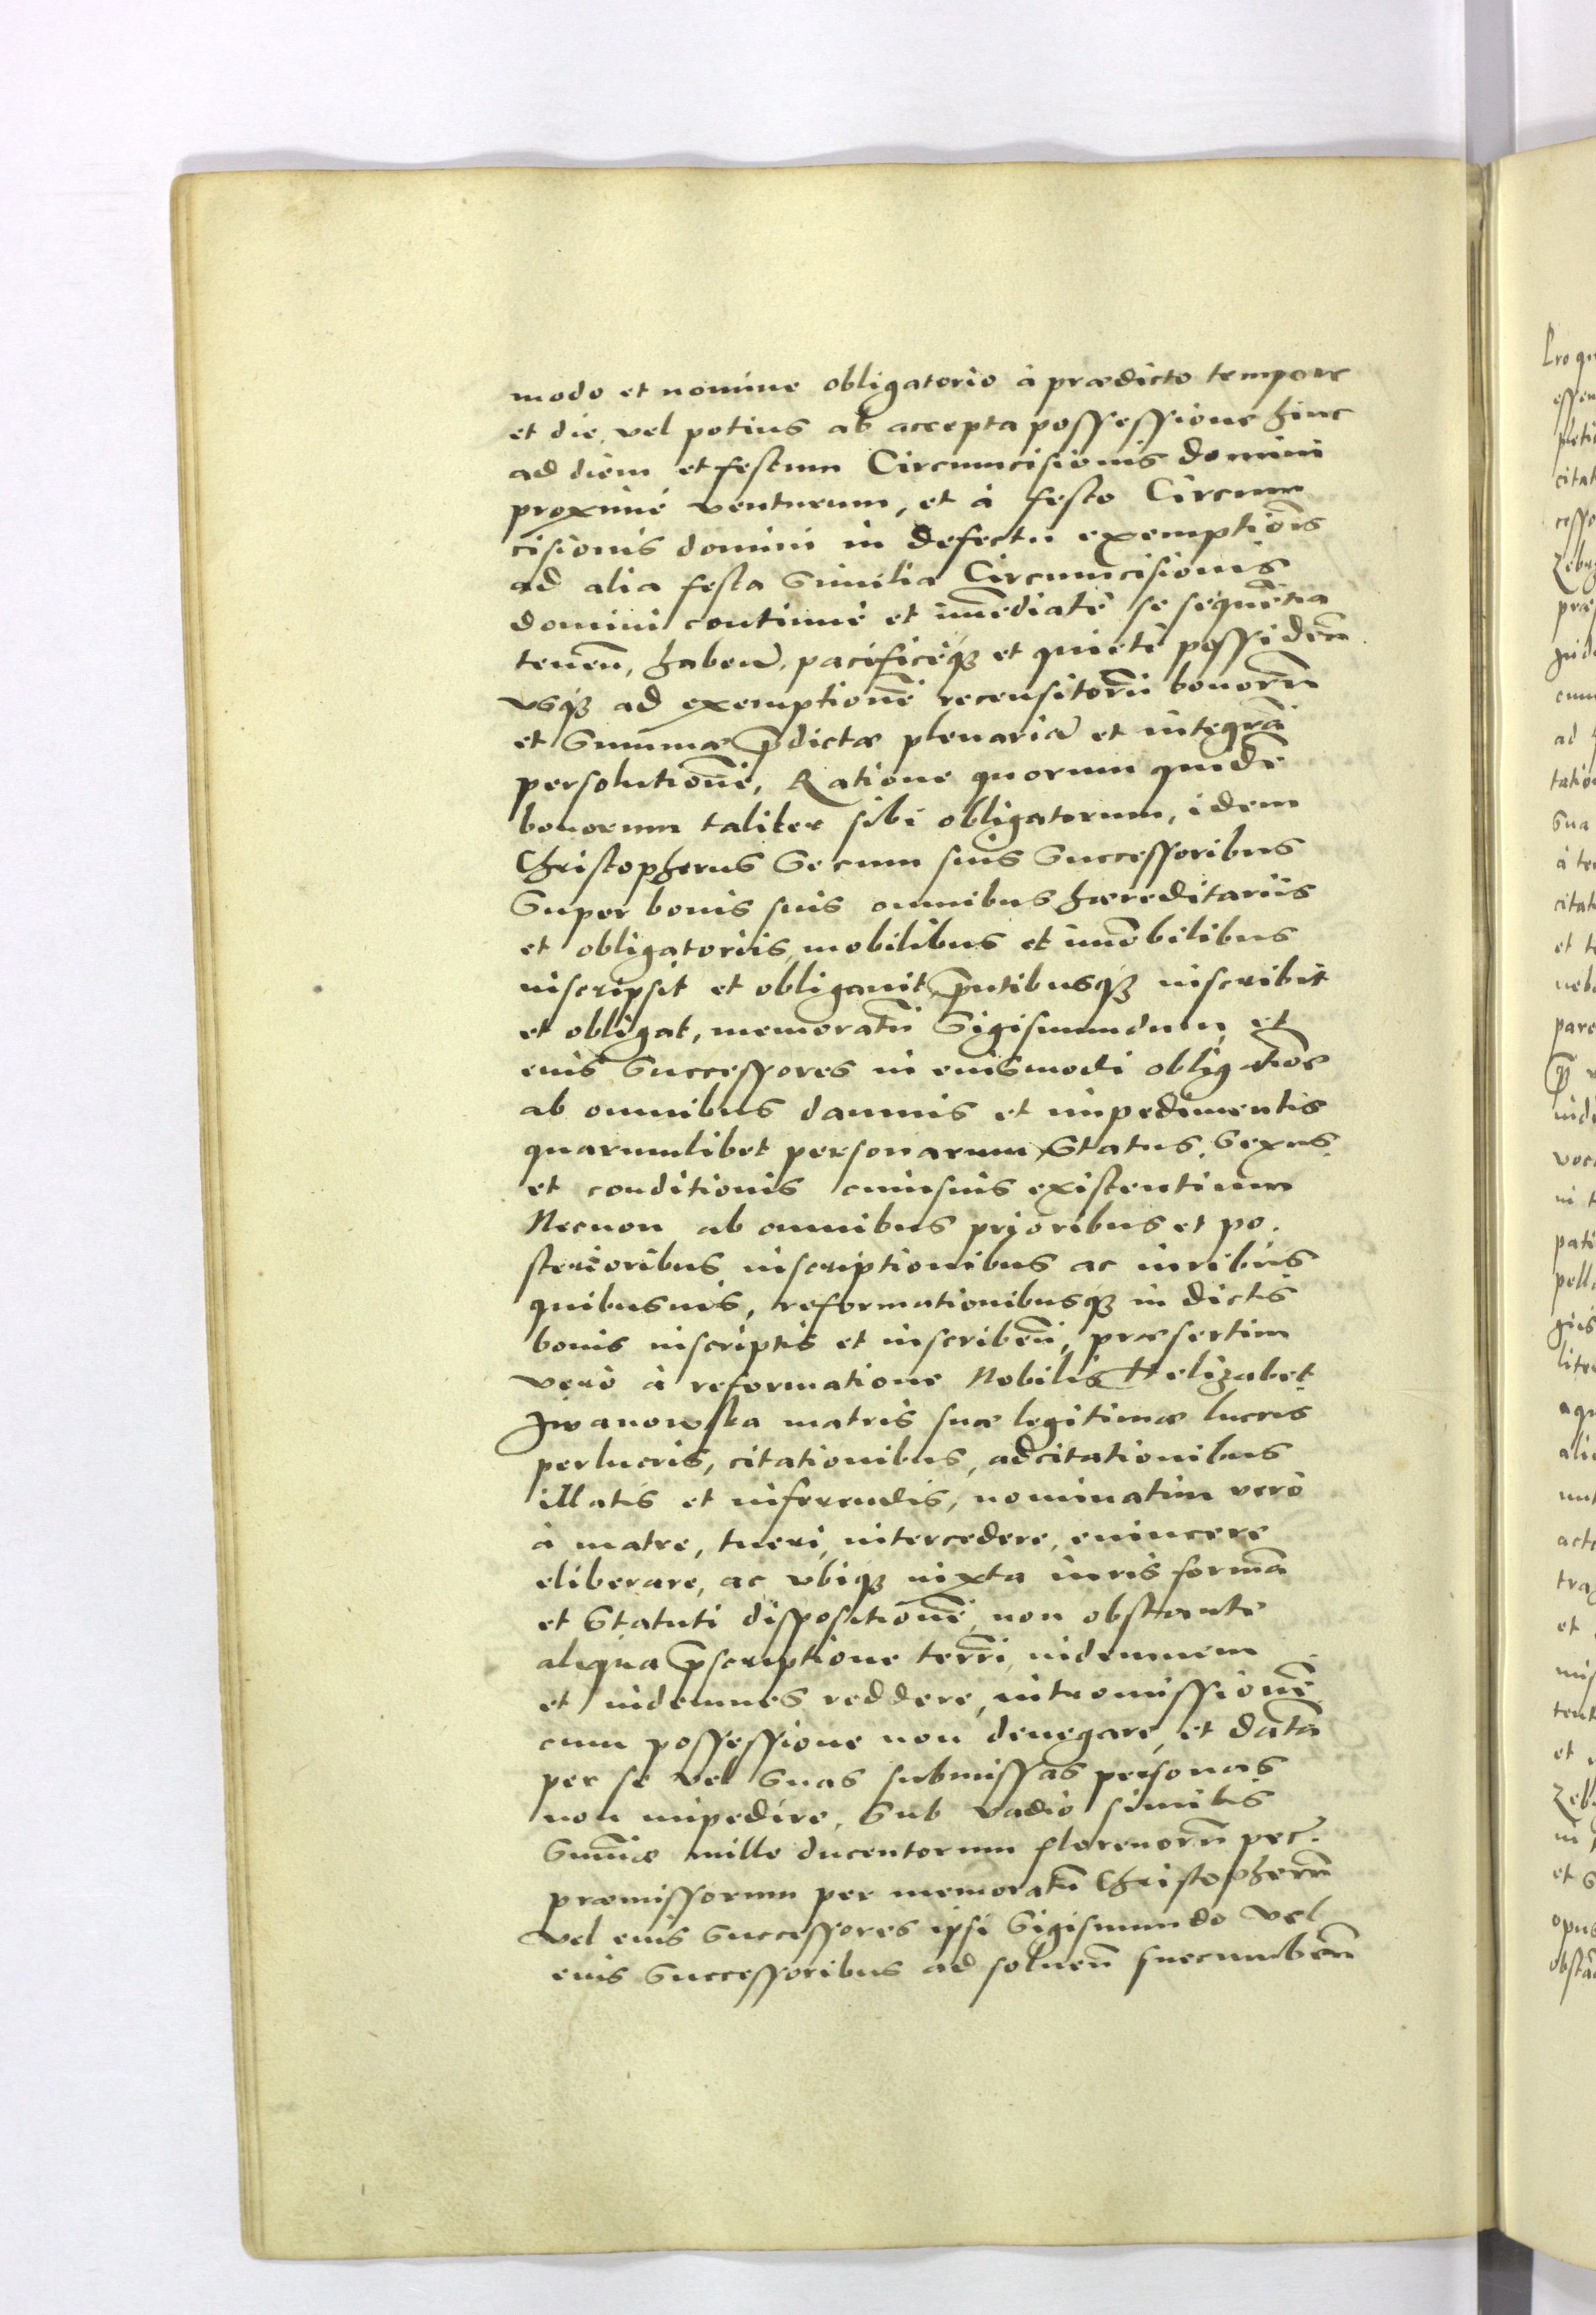 modo et nomine obligatorio à prædicto tempore
et die, vel potius ab accepta possessione hinc
ad diem et festum Circumcisionis domini
proximè venturum, et à festo Circum
cisionis domini in defectu exemptiōis
ad alia festa similia Circumcisionis
domini continuè et im̄ediatè se sequēntia
tenen̄, haben̄, pacificeq₃ et quietè possiden̄
vsq₃ ad exemptionē recensitorū bonorū
et summæ p̄dictæ plenariā et integrā
persolutionē, Ratione quorum quidē
bonorum taliter sibi obligatorum, idem
Christopherus se cum suis successoribus
super bonis suis omnibus hæreditariis
et obligatoriis, mobilibus et im̄obilibus
inscripsit et obligauit, p̄ntibusq₃ inscribit
et obligat, memoratū Sigismundum, et
eius successores in eiusmodi obligatiōe
ab omnibus damnis et impedimentis
quarumlibet personarum, status, sexus,
et conditionis cuiusuis existentium
Necnon ab omnibus prioribus et po.
sterioribus inscriptionibus ac iuribus
quibusuis, reformationibusq₃ in dictis
bonis inscriptis et inscriben̄, præsertim
verò à reformatione Nobilis Helizabet
Iwanowska matris suæ legitimæ lucris
perlucris, citationibus, adcitationibus
illatis et inferendis, nominatim verò
à matre, tueri, intercedere, euincere
eliberare, ac vbiq₃ iuxta iuris formā
et Statuti dispositionē, non obstante
aliqua p̄scriptione terrī, indemnem
et indemnes reddere, intromissionē
cum possessione non denegare, et datā
per se vel suas submissas personas
non impedire, sub vadio similis
sum̄æ mille ducentorum florenorū pec.
præmissorum per memoratū Christopherū
vel eius successores ipsi Sigismundo vel
eius successoribus ad soluen̄ succumben̄